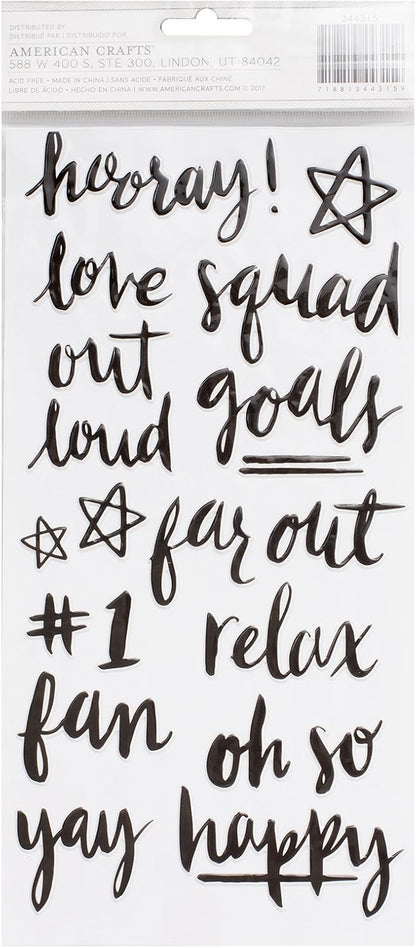 DISTRIBUTED BY
DISTRIBUÉ PAR | DISTRIBUIDO POR
AMERICAN CRAFTS™
588 W 400 S, STE 300, LINDON, UT 84042
ACID FREE • MADE IN CHINA | SANS ACIDE • FABRIQUÉ AUX CHINE
LIBRE DE ÁCIDO • HECHO EN CHINA | WWW.AMERICANCRAFTS.COM © 2017
344315
7 18813 44315 9
hooray!
love
out
loud
squad
goals
far out
#1
fan
relax
oh so
happy
yay